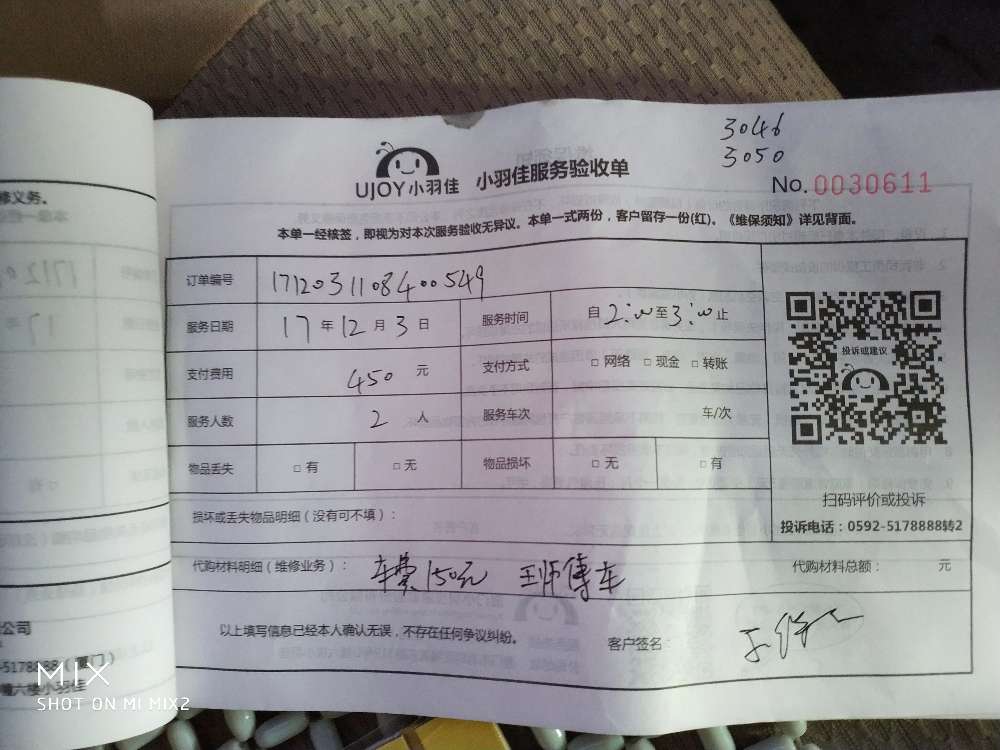 3046
3050
UJOY小羽佳 小羽佳服务验收单
No. 0030611
本单一经核签，即视为对本次服务验收无异议。本单一式两份，客户留存一份(红)。《维保须知》详见背面。
订单编号 1712031108400549
服务日期 17 年 12 月 3 日 服务时间 自 2:00 至 3:00 止
支付费用 450 元 支付方式 □ 网络 □ 现金 □ 转账
服务人数 2 人 服务车次 车/次
物品丢失 □ 有 □ 无 物品损坏 □ 无 □ 有
投诉或建议
扫码评价或投诉
投诉电话：0592-5178888转2
损坏或丢失物品明细（没有可不填）：
代购材料明细（维修业务）： 车费150元 王师傅车 代购材料总额： 元
以上填写信息已经本人确认无误，不存在任何争议纠纷。 客户签名：
修义务。
公司
六楼小羽佳
MIX
SHOT ON MI MIX2